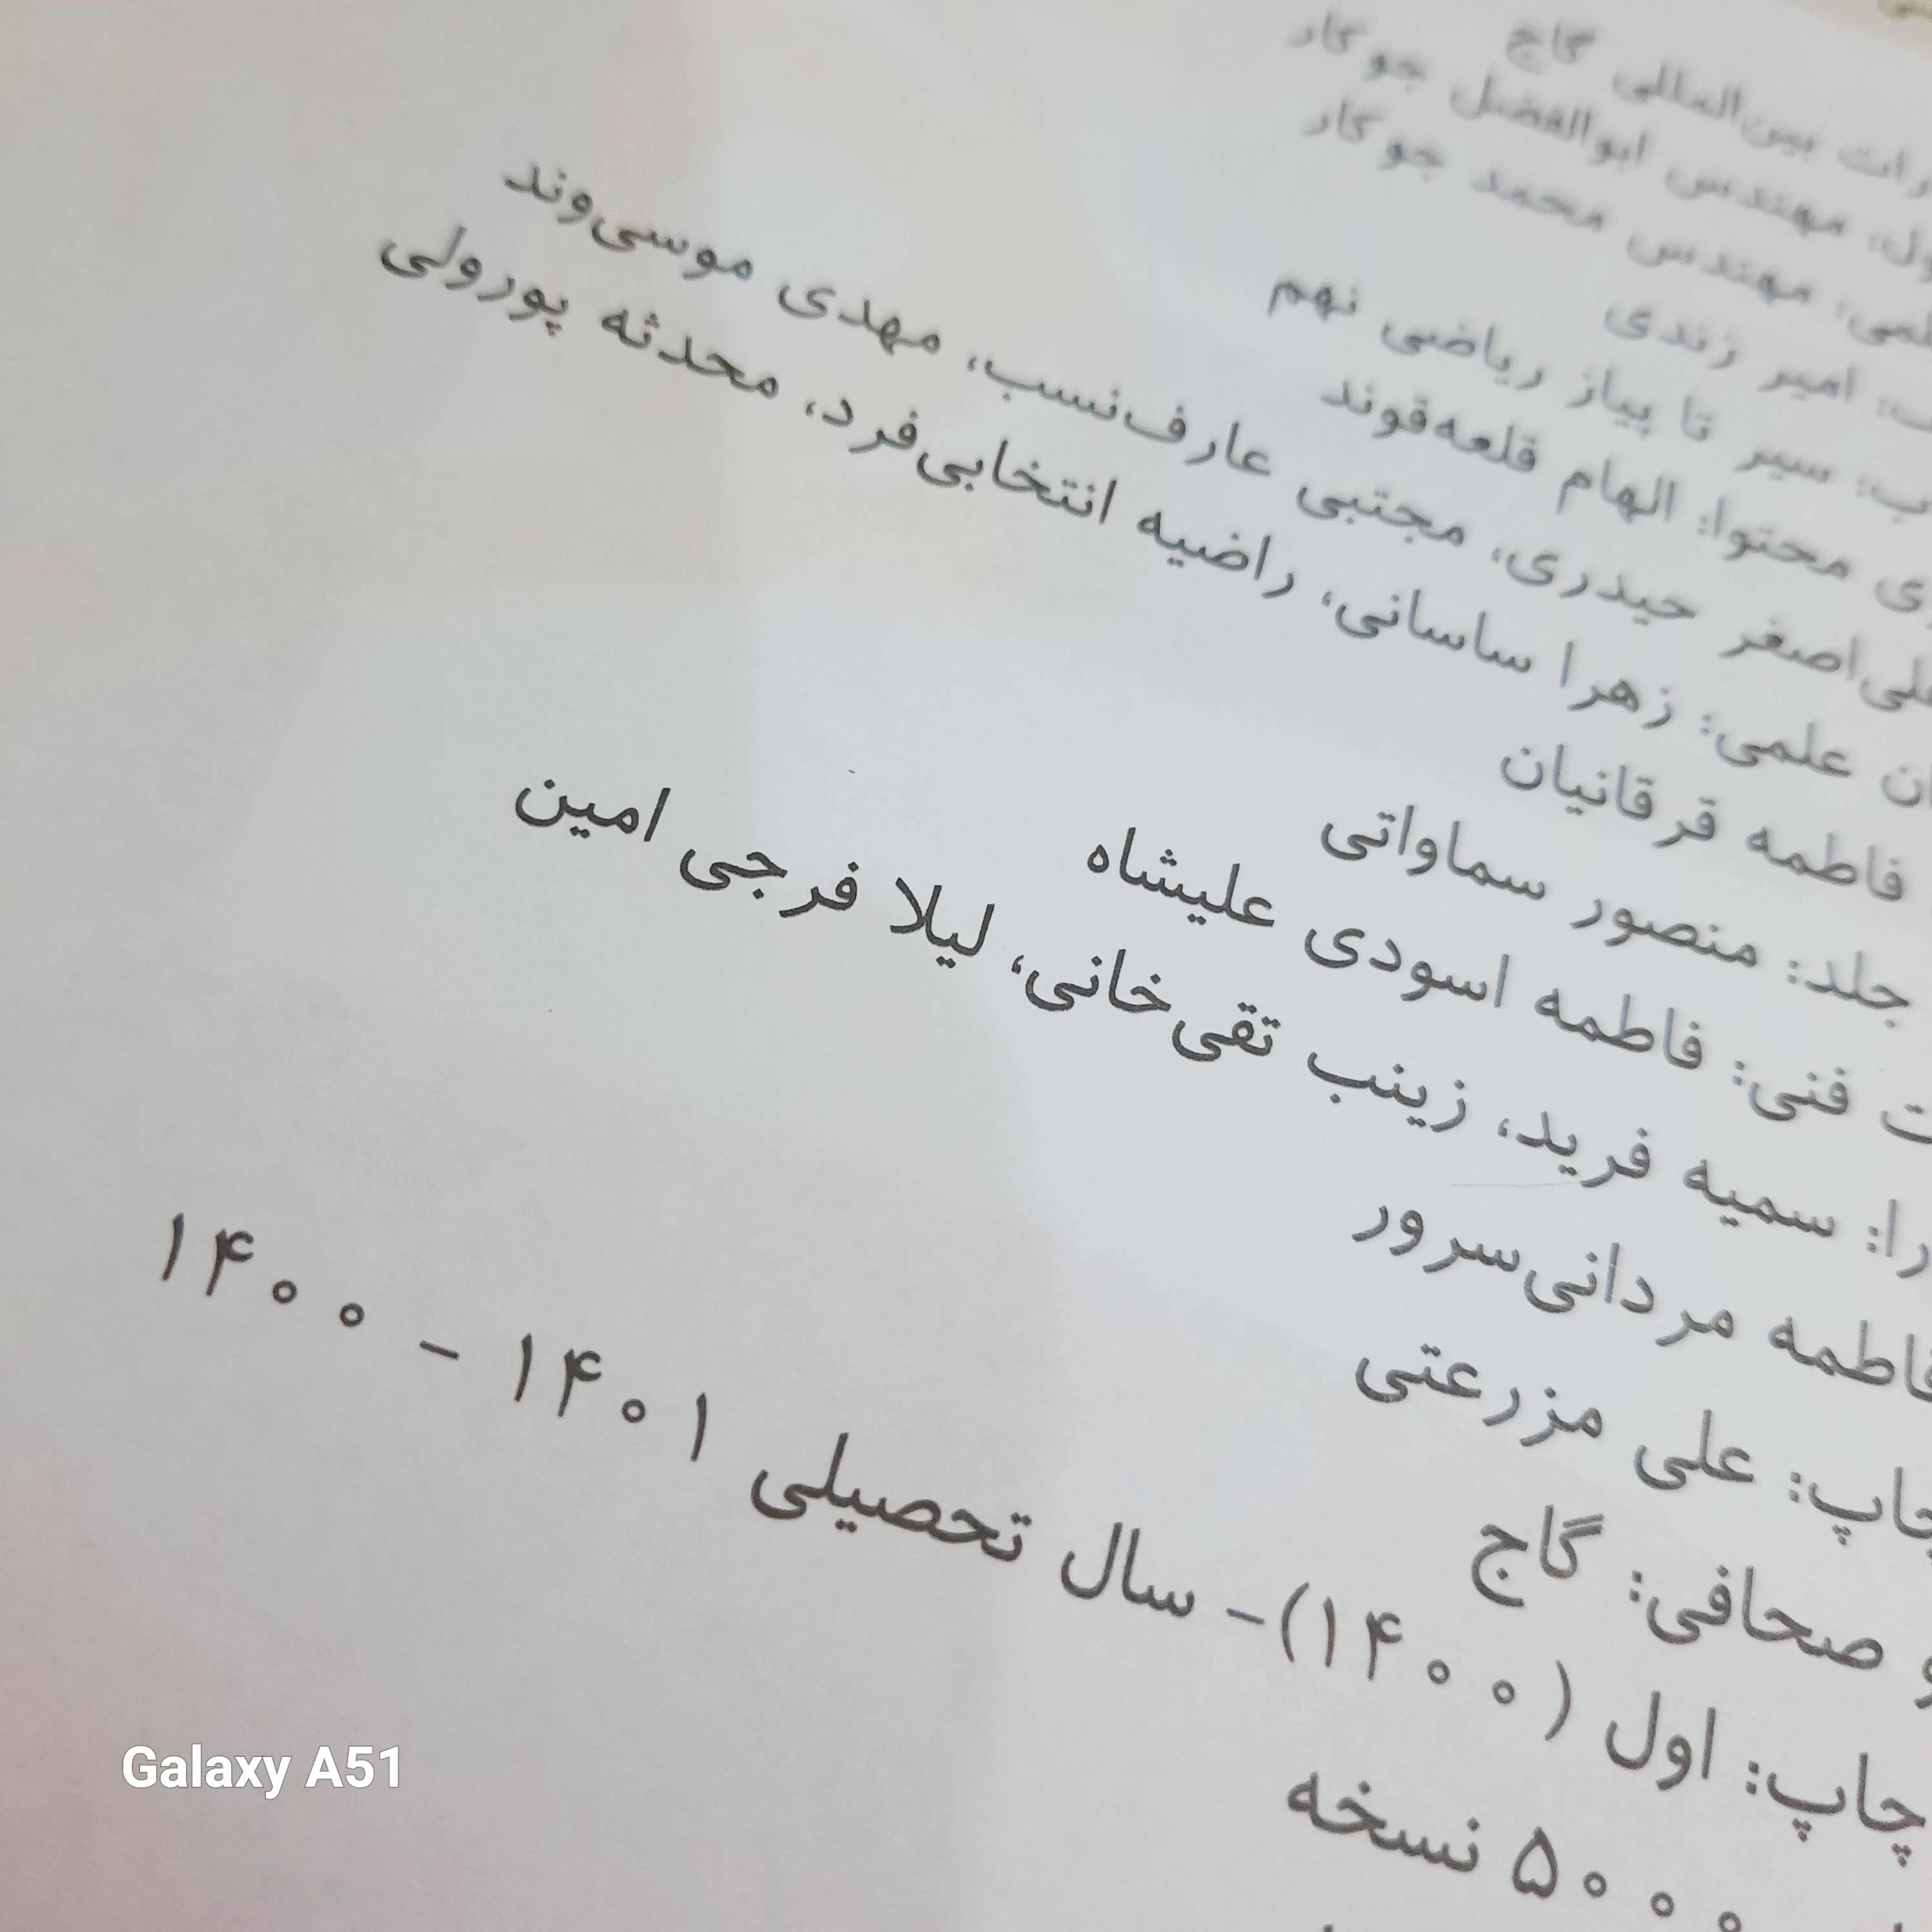 بین‌المللی گاج
مهندس ابوالفضل جوکار
مهندس محمد جوکار
امیر زندی
سیر تا پیاز ریاضی نهم
محتوا: الهام قلعه‌قوند
علی‌اصغر حیدری، مجتبی عارف‌نسب، مهدی موسی‌وند
علمی: زهرا ساسانی، راضیه انتخابی‌فرد، محدثه پورولی
فاطمه قرقانیان
جلد: منصور سماواتی
فنی: فاطمه اسودی علیشاه
سمیه فرید، زینب تقی‌خانی، لیلا فرجی امین
فاطمه مردانی‌سرور
چاپ: علی مزرعتی
و صحافی: گاج
چاپ: اول (۱۴۰۰)- سال تحصیلی ۱۴۰۱ - ۱۴۰۰
۵۰۰۰ نسخه
Galaxy A51